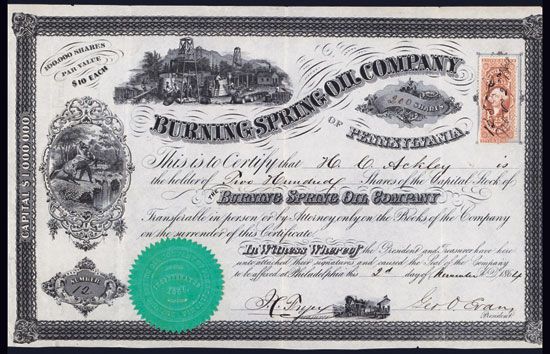 100,000 SHARES
PAR VALUE
$10 EACH
CAPITAL $1,000,000
BURNING SPRING OIL COMPANY
OF PENNSYLVANIA.
SHARES
This is to Certify that H. C. Ackley is
the holder of Five Hundred Shares of the Capital Stock of
THE BURNING SPRING OIL COMPANY
Transferable in person or by Attorney only on the Books of the Company
on the surrender of this Certificate.
In Witness Whereof the President and Treasurer have here
unto attached their signatures and caused the Seal of the Company
to be affixed at Philadelphia this 2d day of November 1864
NUMBER
PENNSYLVANIA
Geo. O. Evans
President.